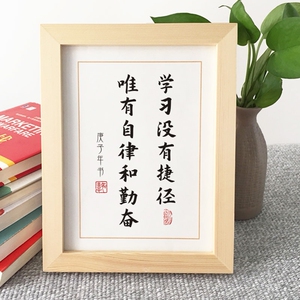 学习没有捷径
唯有自律和勤奋
庚子年书
MARKETING
WARFARE